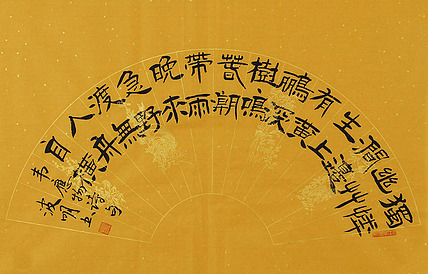 獨憐
幽草
澗邊
生上
有黃
鸝深
樹鳴
萅潮
帶雨
晚來
急野
渡無
人舟
自橫
韋應物詩句
波明书